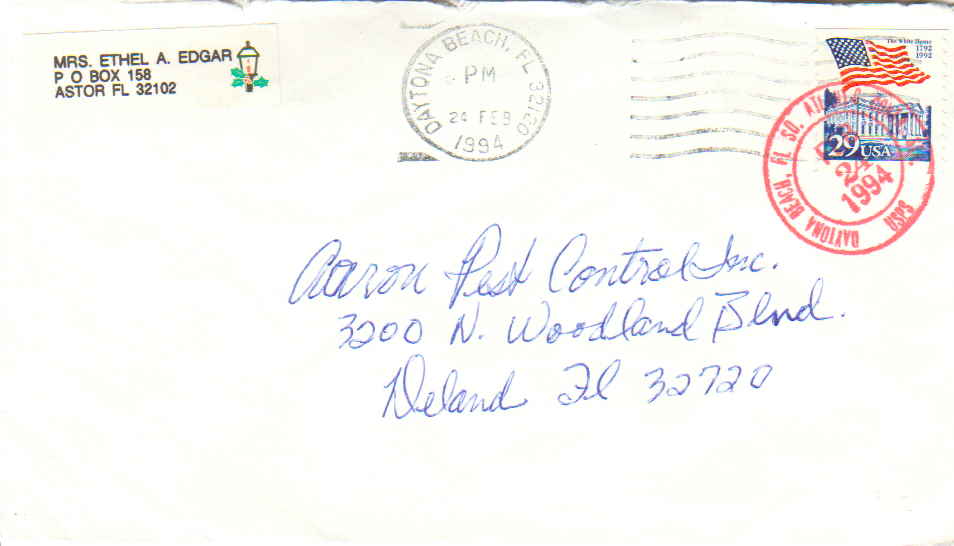 MRS. ETHEL A. EDGAR
P O BOX 158
ASTOR FL 32102
DAYTONA BEACH, FL 32120
PM
24 FEB
1994
The White House
1792
1992
29 USA
DAYTONA BEACH, FL SO. USPS
24
1994
Aaron Pest Control Inc.
3200 N. Woodland Blvd.
Deland Fl 32720